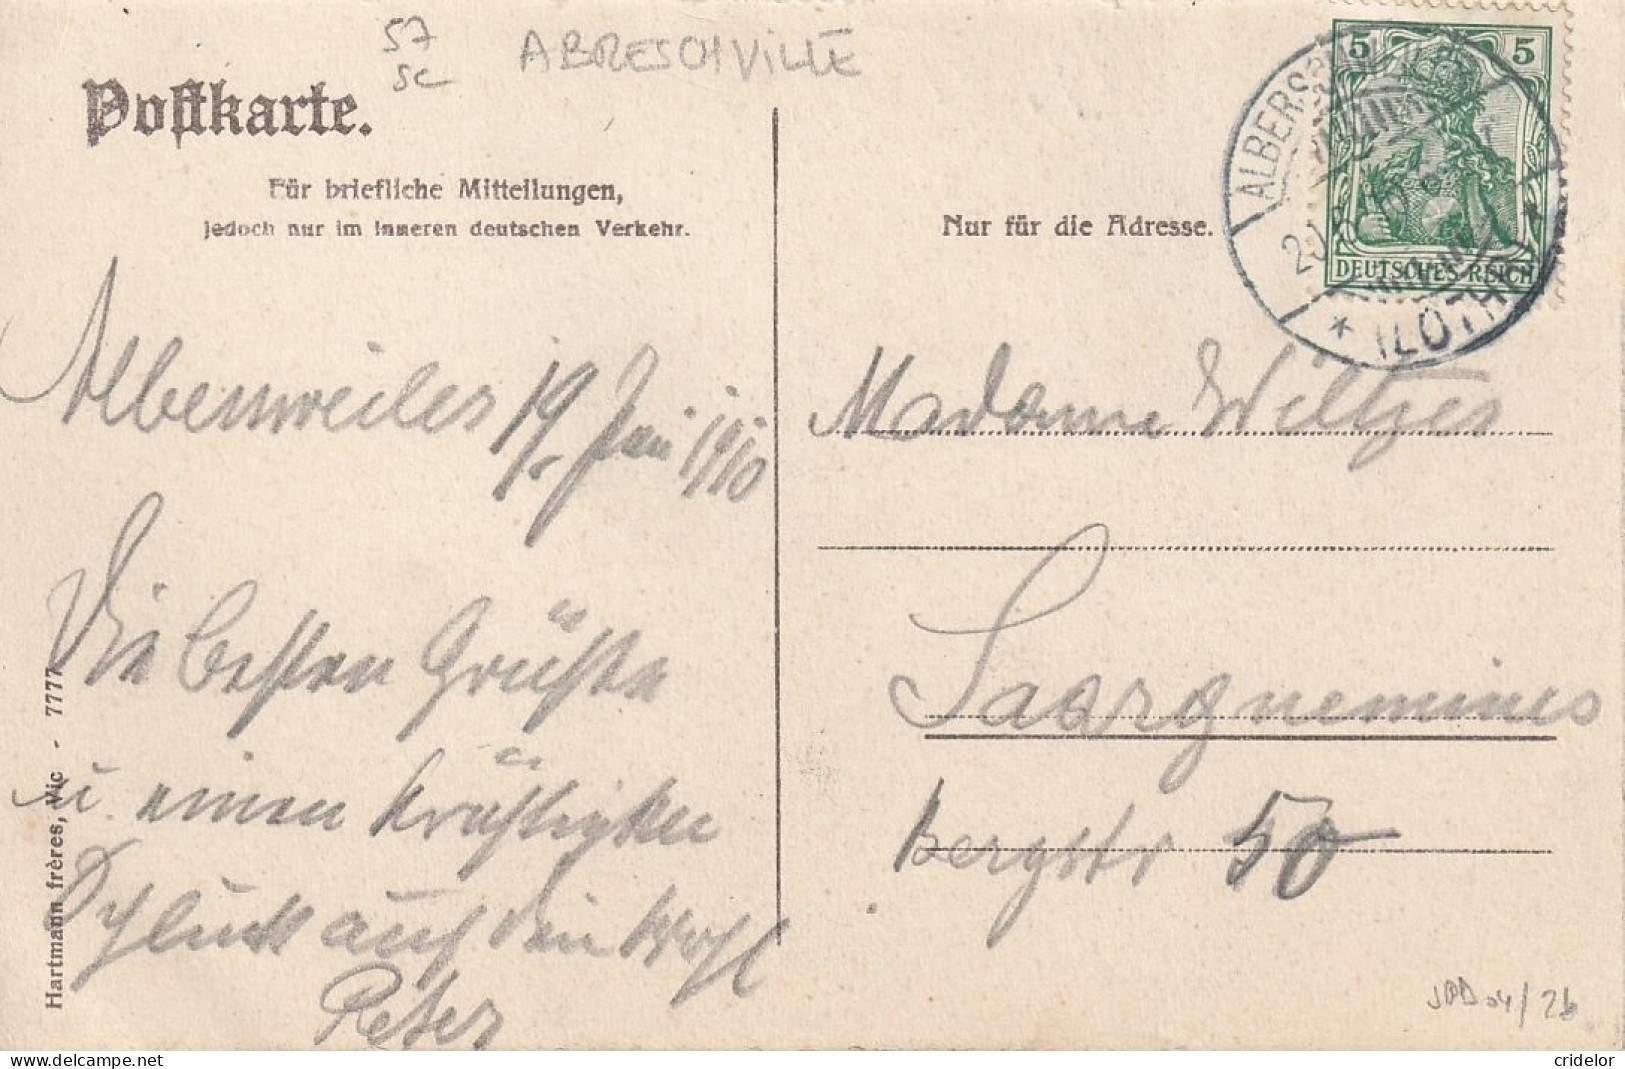 57
sc
ABRESCHVILLE
Postkarte.
Für briefliche Mitteilungen,
jedoch nur im inneren deutschen Verkehr.
Nur für die Adresse.
5 5
DEUTSCHES REICH
ALBERS
* (LOTH
19. Juni 1910
Madame Weltzer
Die besten Grüße
Saargnemines
u. einen kräftigen
Bergstr 50
Schluck auf dein Wohl
Peter
Hartmann frères, Vic - 7777
04/26
cridelor
www.delcampe.net